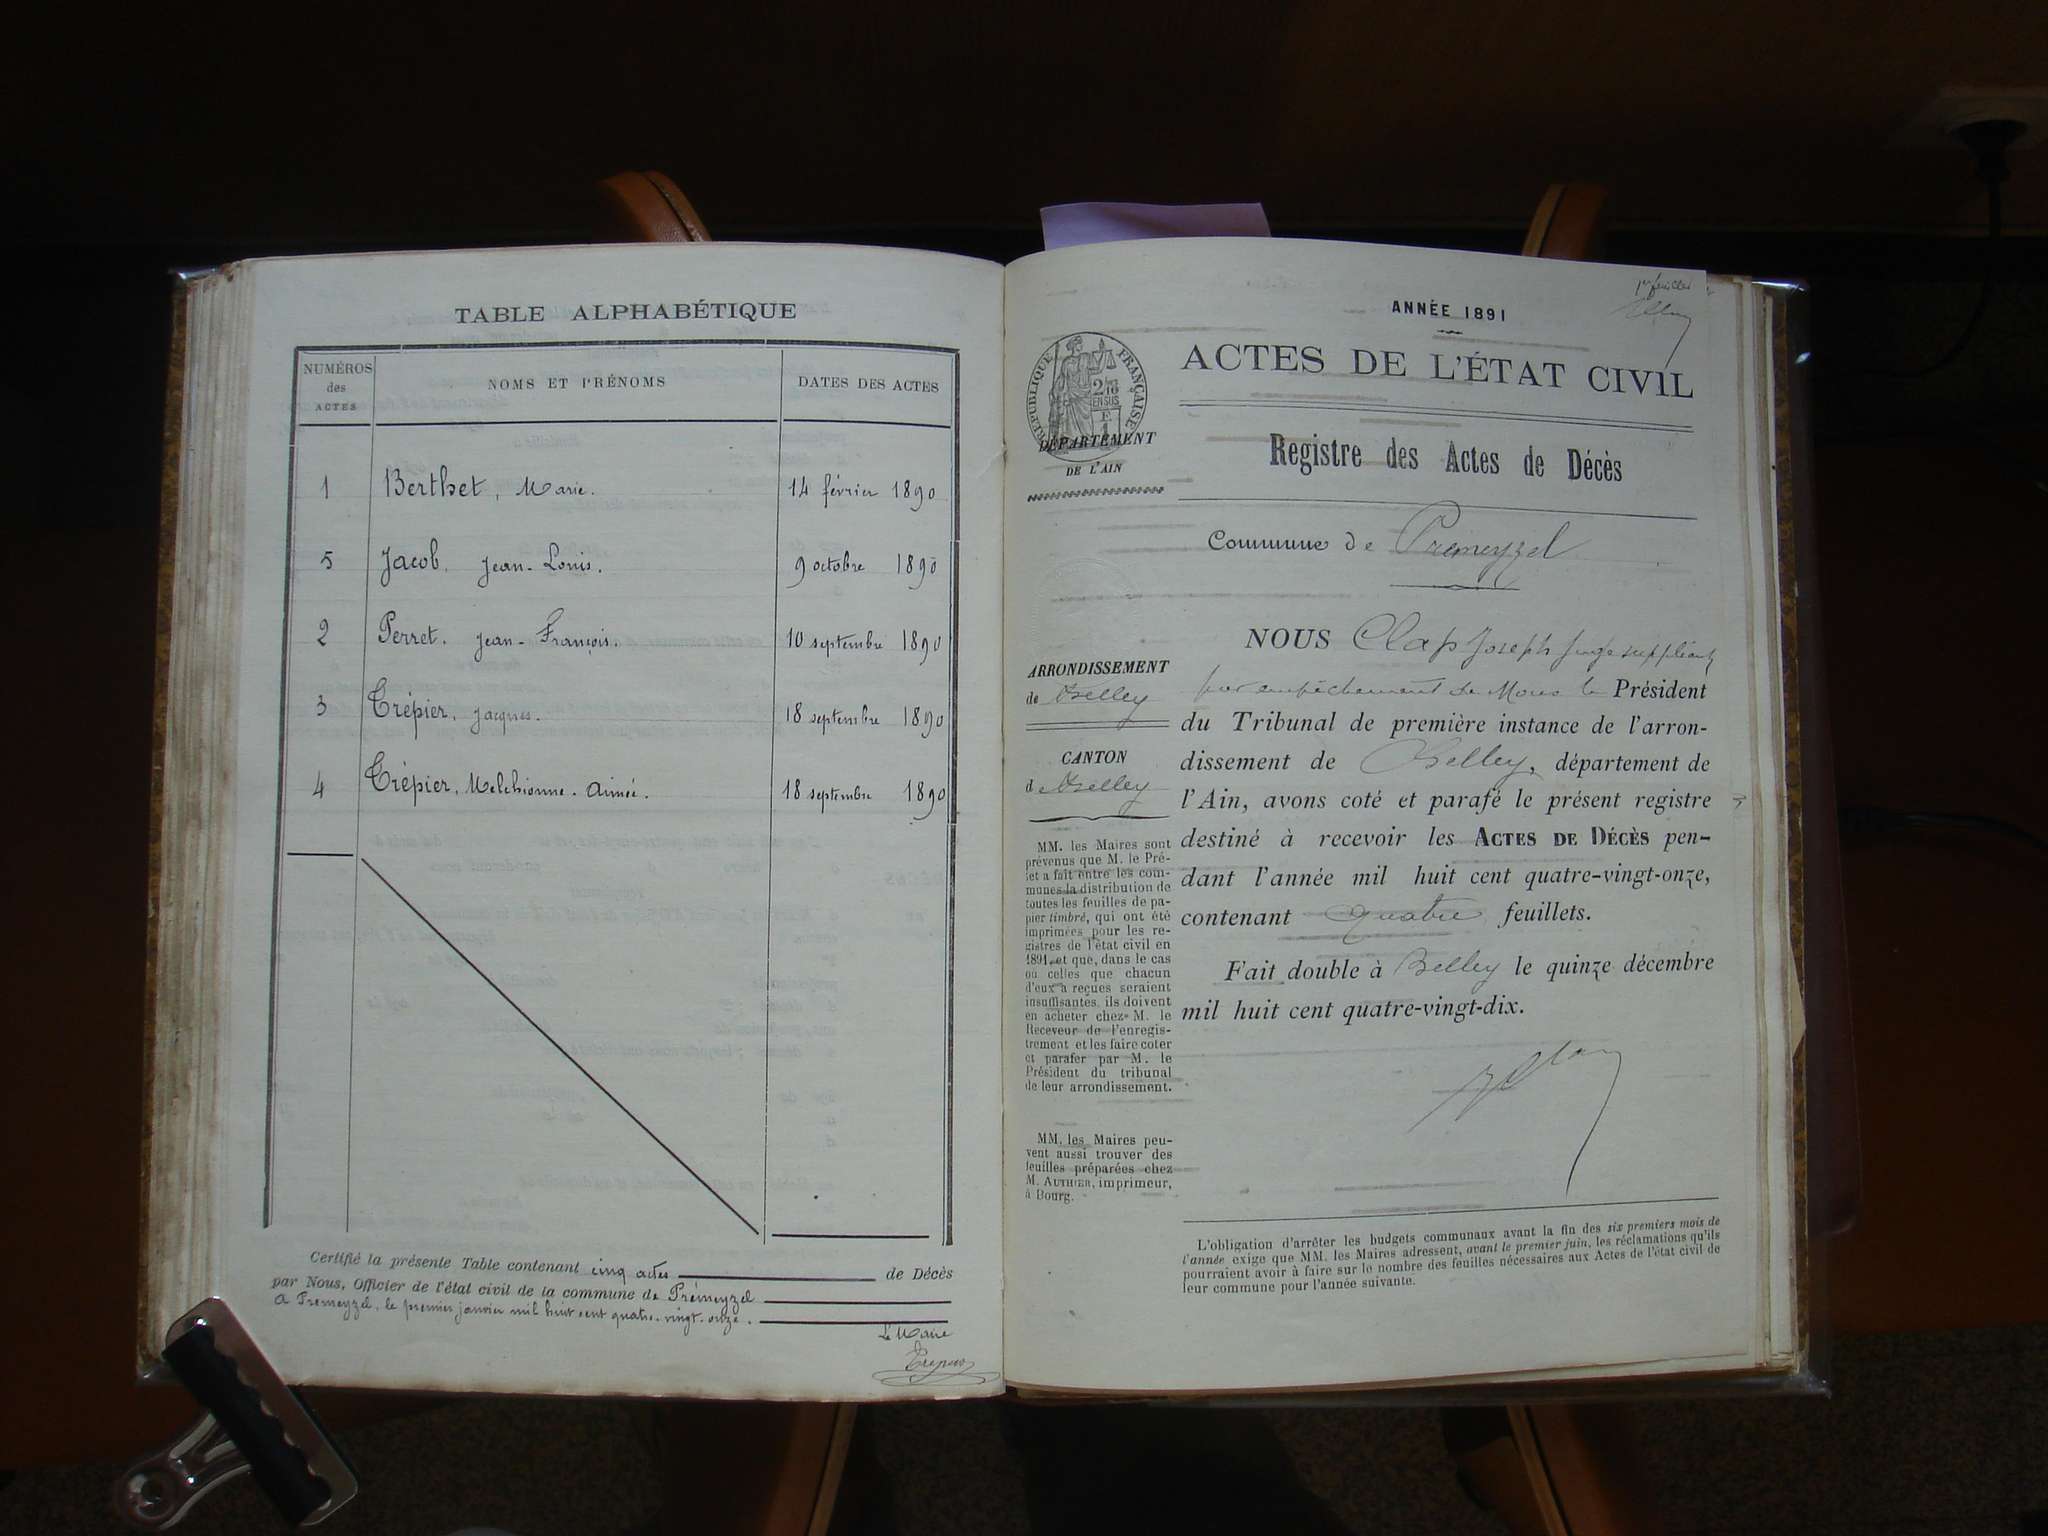 TABLE ALPHABÉTIQUE
NUMÉROS des ACTES
NOMS ET PRÉNOMS
DATES DES ACTES
1 Berthet, Marie. 14 février 1890
5 Jacob, Jean-Louis. 9 octobre 1890
2 Perret, Jean-François. 10 septembre 1890
3 Trépier, Jacques. 18 septembre 1890
4 Trépier, Melchionne-Aimée. 18 septembre 1890
Certifié la présente Table contenant cinq actes de Décès
par Nous, Officier de l'état civil de la commune de Prémeyzel
A Premeyzel, le premier janvier mil huit cent quatre-vingt-onze.
Le Maire
1er feuillet
ANNÉE 1891
ACTES DE L'ÉTAT CIVIL
RÉPUBLIQUE FRANÇAISE
DÉPARTEMENT
DE L'AIN
Registre des Actes de Décès
Commune de Premeyzel
ARRONDISSEMENT
de Belley
CANTON
de Belley
MM. les Maires sont
prévenus que M. le Pré-
fet a fait entre les com-
munes la distribution de
toutes les feuilles de pa-
pier timbré, qui ont été
imprimées pour les re-
gistres de l'état civil en
1891, et que, dans le cas
où celles que chacun
d'eux a reçues seraient
insuffisantes, ils doivent
en acheter chez M. le
Receveur de l'enregis-
trement et les faire coter
et parafer par M. le
Président du tribunal
de leur arrondissement.
MM. les Maires peu-
vent aussi trouver des
feuilles préparées chez
M. AUTHIER, imprimeur,
à Bourg.
NOUS Clap Joseph juge suppléant
par empêchement de Mons le Président
du Tribunal de première instance de l'arron-
dissement de Belley, département de
l'Ain, avons coté et parafé le présent registre
destiné à recevoir les ACTES DE DÉCÈS pen-
dant l'année mil huit cent quatre-vingt-onze,
contenant quatre feuillets.
Fait double à Belley le quinze décembre
mil huit cent quatre-vingt-dix.
L'obligation d'arrêter les budgets communaux avant la fin des six premiers mois de
l'année exige que MM. les Maires adressent, avant le premier juin, les réclamations qu'ils
pourraient avoir à faire sur le nombre des feuilles nécessaires aux Actes de l'état civil de
leur commune pour l'année suivante.